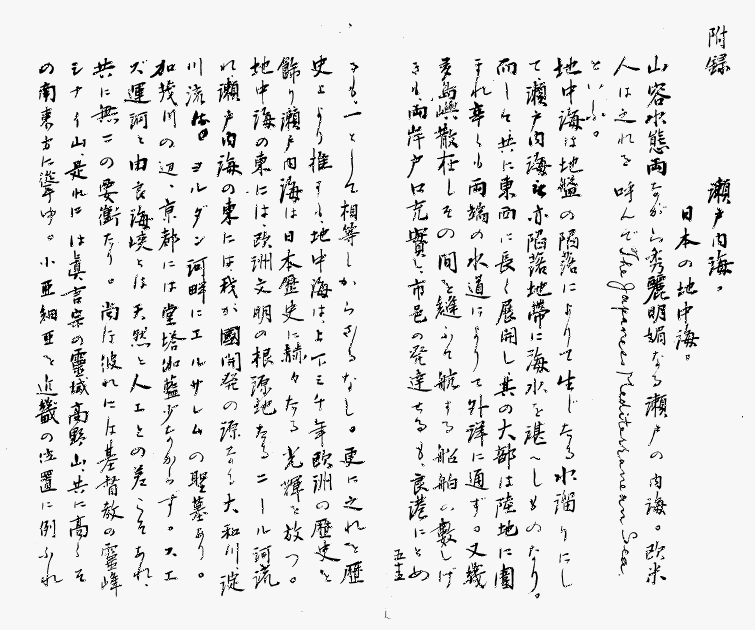 附録
瀬戸内海。
日本の地中海。
山容水態両ながら秀麗明媚なる瀬戸の内海。欧米
人は之れを呼んでThe Japanese Mediterranean Sea.
といふ。
地中海は地盤の陥落によりて生じたる水溜りにし
て瀬戸内海も亦陥落地帯に海水を湛へしものなり。
而して共に東西に長く展開し其の大部は陸地に囲
まれ辛くも両端の水道によりて外洋に通ず。又幾
多島嶼散在しその間を縫ふて航する船舶の数しげ
きも両岸戸口充実し市邑の発達せるも、良港にとめ
五五
るも、一として相等しからざるなし。更に之れを歴
史より推すも地中海は上下三千年欧洲の歴史を
飾り瀬戸内海は日本歴史に赫々たる光輝を放つ。
地中海の東には欧洲文明の根源地たるニール河流
れ瀬戸内海の東には我が國開発の源たる大和川淀
川流る。ヨルダン河畔にエルサレムの聖墓あり。
加茂川の辺、京都には堂塔伽藍少なからず。スエ
ズ運河と由良海峡とは天然と人工との差こそあれ、
共に無二の要衝たり。尚ほ彼れには基督教の霊峰
シナイ山是れには真言宗の霊域高野山、共に高くそ
の南東方に聳ゆ。小亜細亜を近畿の位置に例ふれ